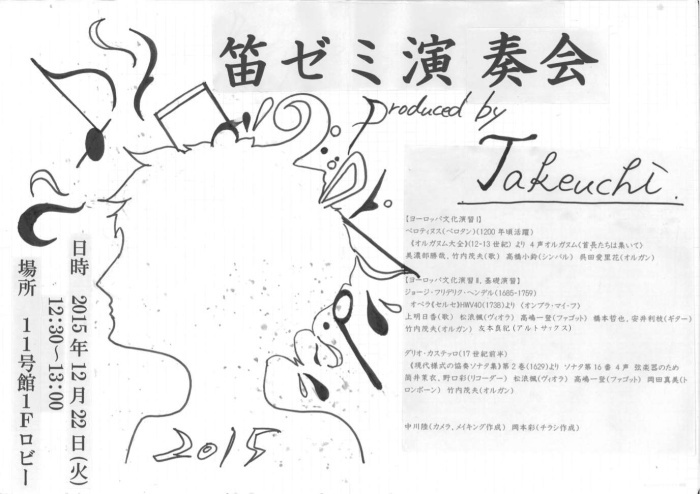 笛ゼミ演奏会
Produced by
Takeuchi.
【ヨーロッパ文化演習Ⅰ】
ペロティヌス(ペロタン)(1200年頃活躍)
《オルガヌム大全》(12-13世紀)より 4声オルガヌム〈首長たちは集いて〉
美濃部勝哉、竹内茂夫(歌) 高橋小鈴(シンバル) 呉田愛里花(オルガン)
【ヨーロッパ文化演習Ⅱ、基礎演習】
ジョージ・フリデリク・ヘンデル(1685-1759)
オペラ《セルセ》HWV40(1738)より 〈オンブラ・マイ・フ〉
上明日香(歌) 松浪楓(ヴィオラ) 高嶋一登(ファゴット) 橋本哲也、安井利枝(ギター)
竹内茂夫(オルガン) 友本良紀(アルトサックス)
ダリオ・カステッロ(17世紀前半)
《現代様式の協奏ソナタ集》第2巻(1629)より ソナタ第16番 4声 弦楽器のため
筒井茉衣、野口彩(リコーダー) 松浪楓(ヴィオラ) 高嶋一登(ファゴット) 岡田真美(ト
ロンボーン) 竹内茂夫(オルガン)
中川陸(カメラ、メイキング作成) 岡本彩(チラシ作成)
日時 2015年12月22日(火)
12:30～13:00
場所 11号館1Fロビー
2015